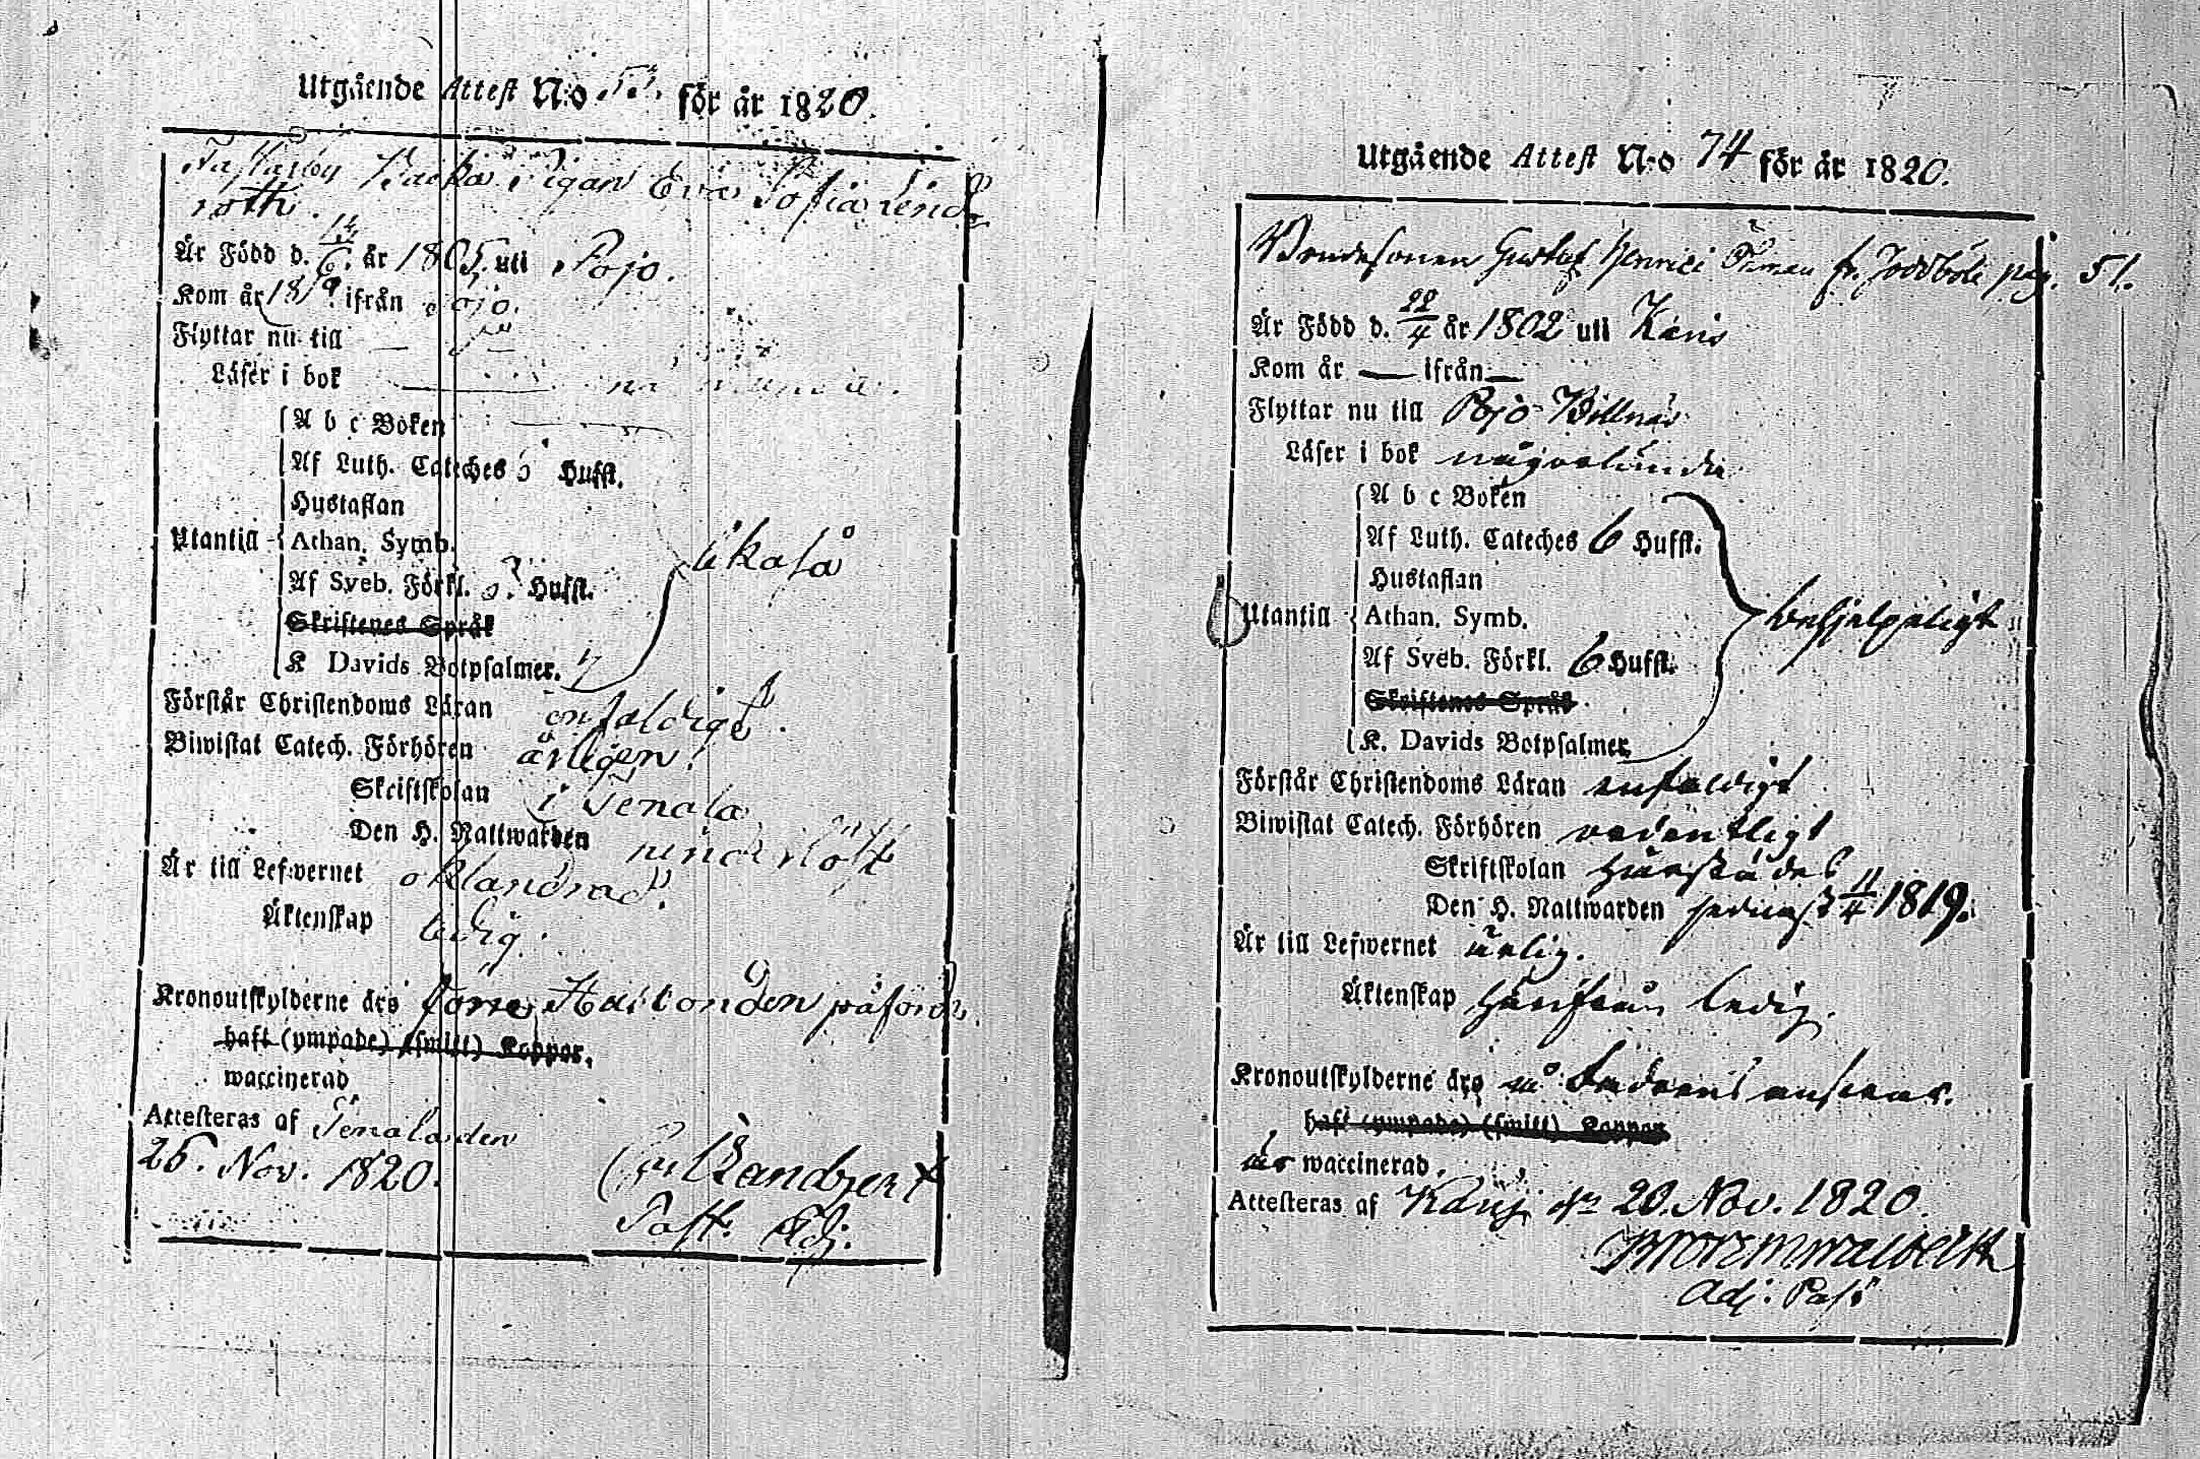 Utgående Attest N:o 53. för år 1820.
Backa Pigan Eva Sofia Lind
roth.
Är Född d. 13/6. år 1805. uti Pojo.
Kom år 1819. ifrån Pojo.
Flyttar nu till
Läser i bok
A b c Boken
Af Luth. Cateches 6 Hufst.
Hustaflan
Utantill Athan. Symb.
Af Sveb. Förkl. Hufst.
Skriftenes Språk
K Davids Botpsalmer. 7
likaså
Förstår Christendoms Läran enfaldigt.
Biwistat Catech. Förhören årligen.
Skriftskolan i Tenala
Den H. Nattwarden
Är till Lefwernet oklandrad.
Äktenskap ledig.
Kronoutskylderne äro förra Husbonden påförde.
haft (ympade) (smitt) Koppor.
waccinerad
Attesteras af Tenala den
26. Nov. 1820.
Past. Adj.
Utgående Attest N:o 74 för år 1820.
Bondesonen Gustaf Henrici fr. Joddböle pag. 51.
Är Född d. 22/4 år 1802 uti Karis
Kom år — ifrån —
Flyttar nu till Pojo Billnäs
Läser i bok någorlunda
A b c Boken
Af Luth. Cateches 6 Hufst.
Hustaflan
Utantill Athan. Symb.
Af Sveb. Förkl. 6 Hufst.
Skriftenes Språk
K. Davids Botpsalmer
behjelpeligt
Förstår Christendoms Läran enfaldigt
Biwistat Catech. Förhören ordentligt
Skriftskolan härstädes
Den H. Nattwarden sednast 11/4 1819.
Är till Lefwernet ärlig.
Äktenskap härifrån ledig.
Kronoutskylderne äro
haft (ympade) (smitt) Koppor
är waccinerad.
Attesteras af Karis d. 20. Nov. 1820.
Adj. Past